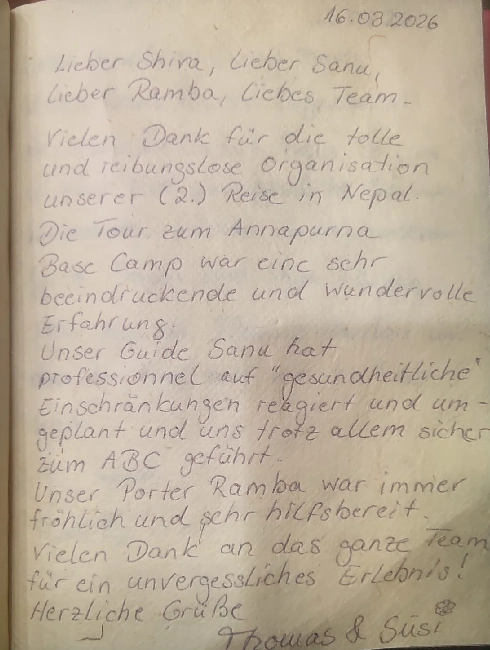 16.03.2026
Lieber Shiva, Lieber Sanu,
Lieber Ramba, Liebes Team.
Vielen Dank für die tolle
und reibungslose Organisation
unserer (2.) Reise in Nepal.
Die Tour zum Annapurna
Base Camp war eine sehr
beeindruckende und wundervolle
Erfahrung.
Unser Guide Sanu hat
professionnel auf "gesundheitliche"
Einschränkungen reagiert und um-
geplant und uns trotz allem sicher
zum ABC geführt.
Unser Porter Ramba war immer
fröhlich und sehr hilfsbereit.
Vielen Dank an das ganze Team
für ein unvergessliches Erlebnis!
Herzliche Grüße
Thomas & Susi